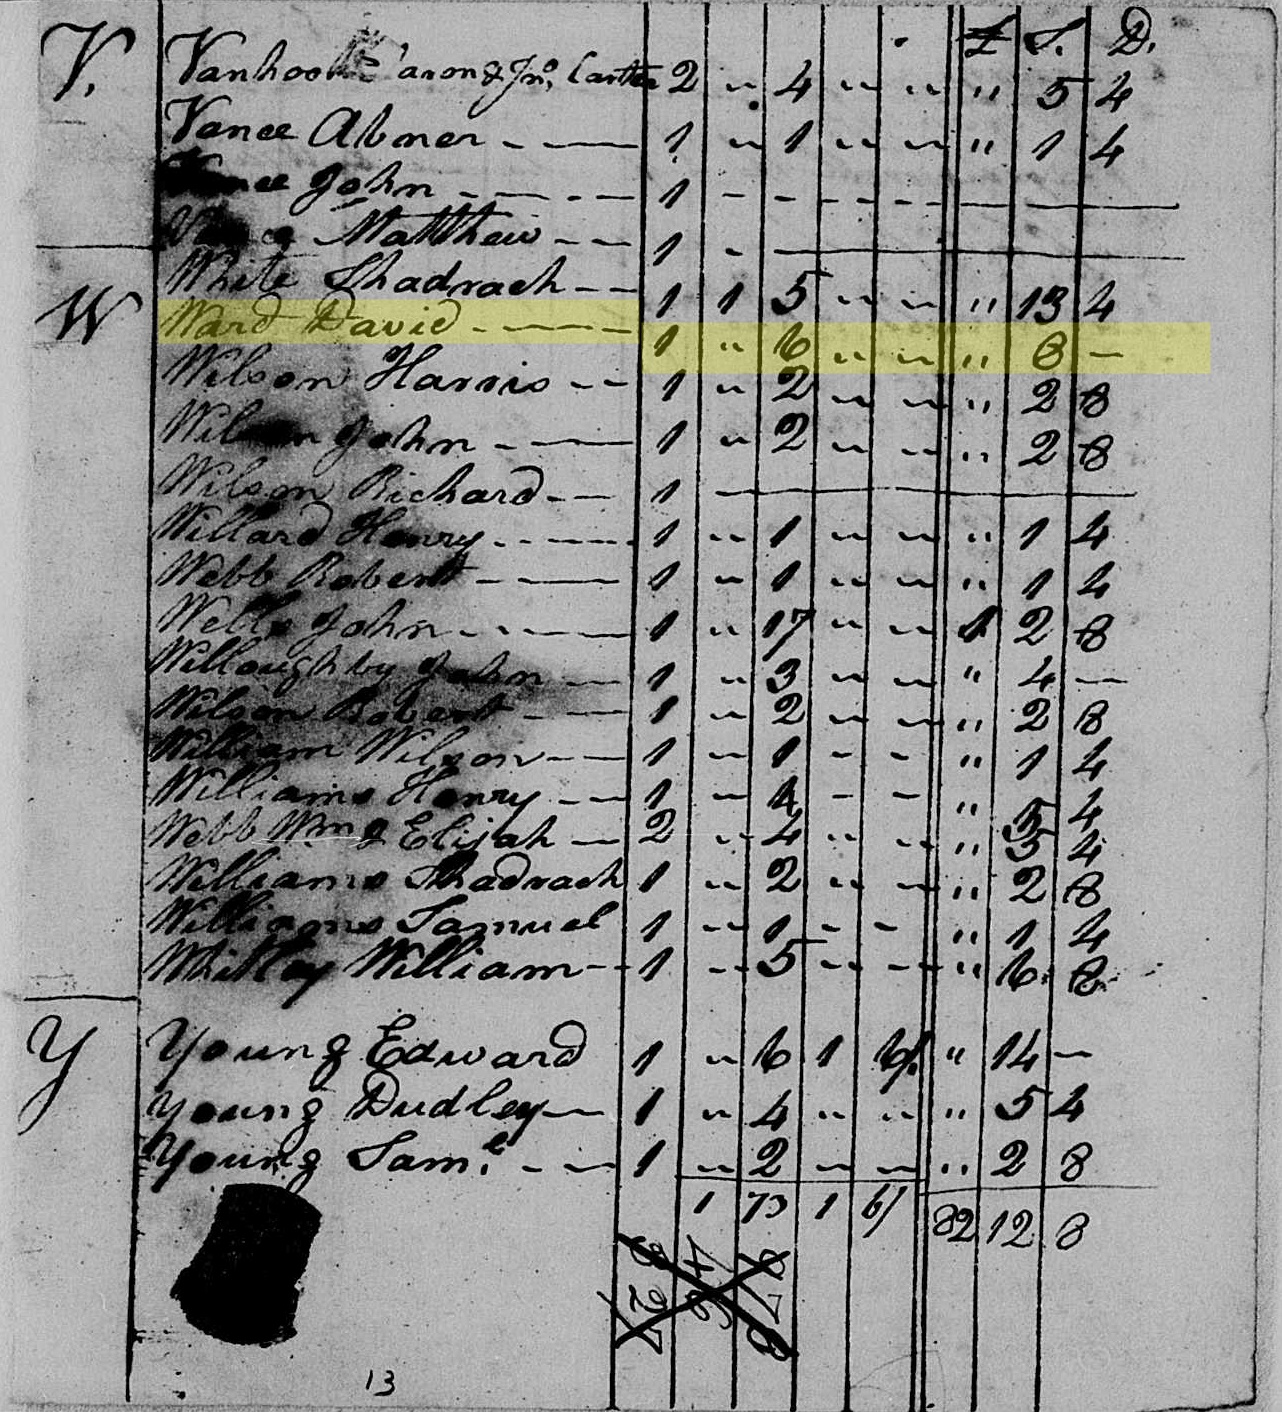 £ S. D.
V. Vanhook Aaron & Jno. Carter 2 " 4 " " " 5 4
Vance Abner - — 1 " 1 " " " 1 4
Vance John - — - - — 1 - - - - - —
Vance Matthew - — 1 - —
W White Shadrach - - 1 1 5 " " " 13 4
Ward David - — 1 " 6 " " " 8 —
Wilson Harris - - 1 " 2 " " " 2 8
Wilson John - — 1 " 2 " " " 2 8
Wilson Richard - — 1 —
Willard Henry - - — 1 " 1 " " " 1 4
Webb Robert - — 1 " 1 " " " 1 4
Wells John - - — 1 " 17 " " 1 2 8
Willoughby John - — 1 " 3 " " " 4 —
Wilson Robert - — 1 " 2 " " " 2 8
William Wilson - — 1 " 1 - - " 1 4
Williams Henry - — 1 " 4 - - " 5 4
Webb Wm & Elijah — 2 " 4 " " " 5 4
Williams Shadrach 1 " 2 " " " 2 8
Williams Samuel 1 " 1 - - " 1 4
Whitley William - - 1 " 5 " " " 6 8
Y Young Edward 1 " 6 1 6/. " 14 —
Young Dudley — 1 " 4 " " " 5 4
Young Saml. - — 1 " 2 " " " 2 8
1 73 1 6/ 82 12 8
13